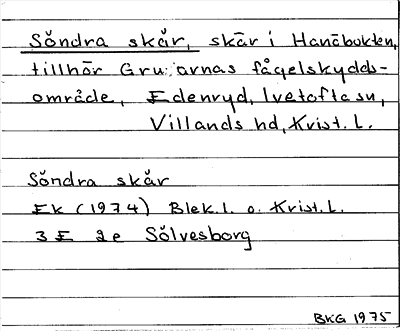 Söndra skär, skär i Hanöbukten,
tillhör Gruarnas fågelskydds-
område, Edenryd, Ivetofta sn,
Villands hd, Krist. l.
Söndra skär
Ek (1974) Blek. l. o. Krist. l.
3 E 2e Sölvesborg
BKG 1975